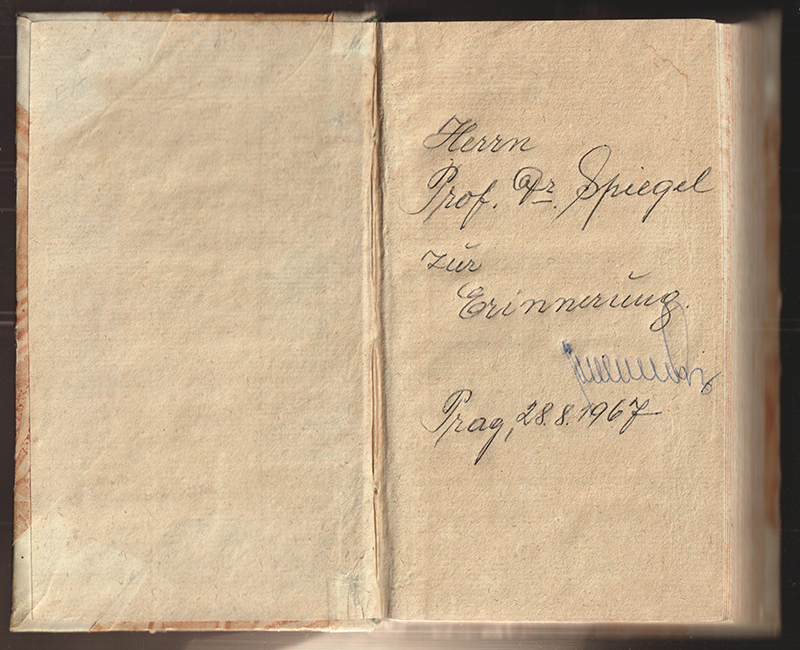 Herrn
Prof. Dr. Spiegel
zur
Erinnerung.
Prag, 28.8.1967